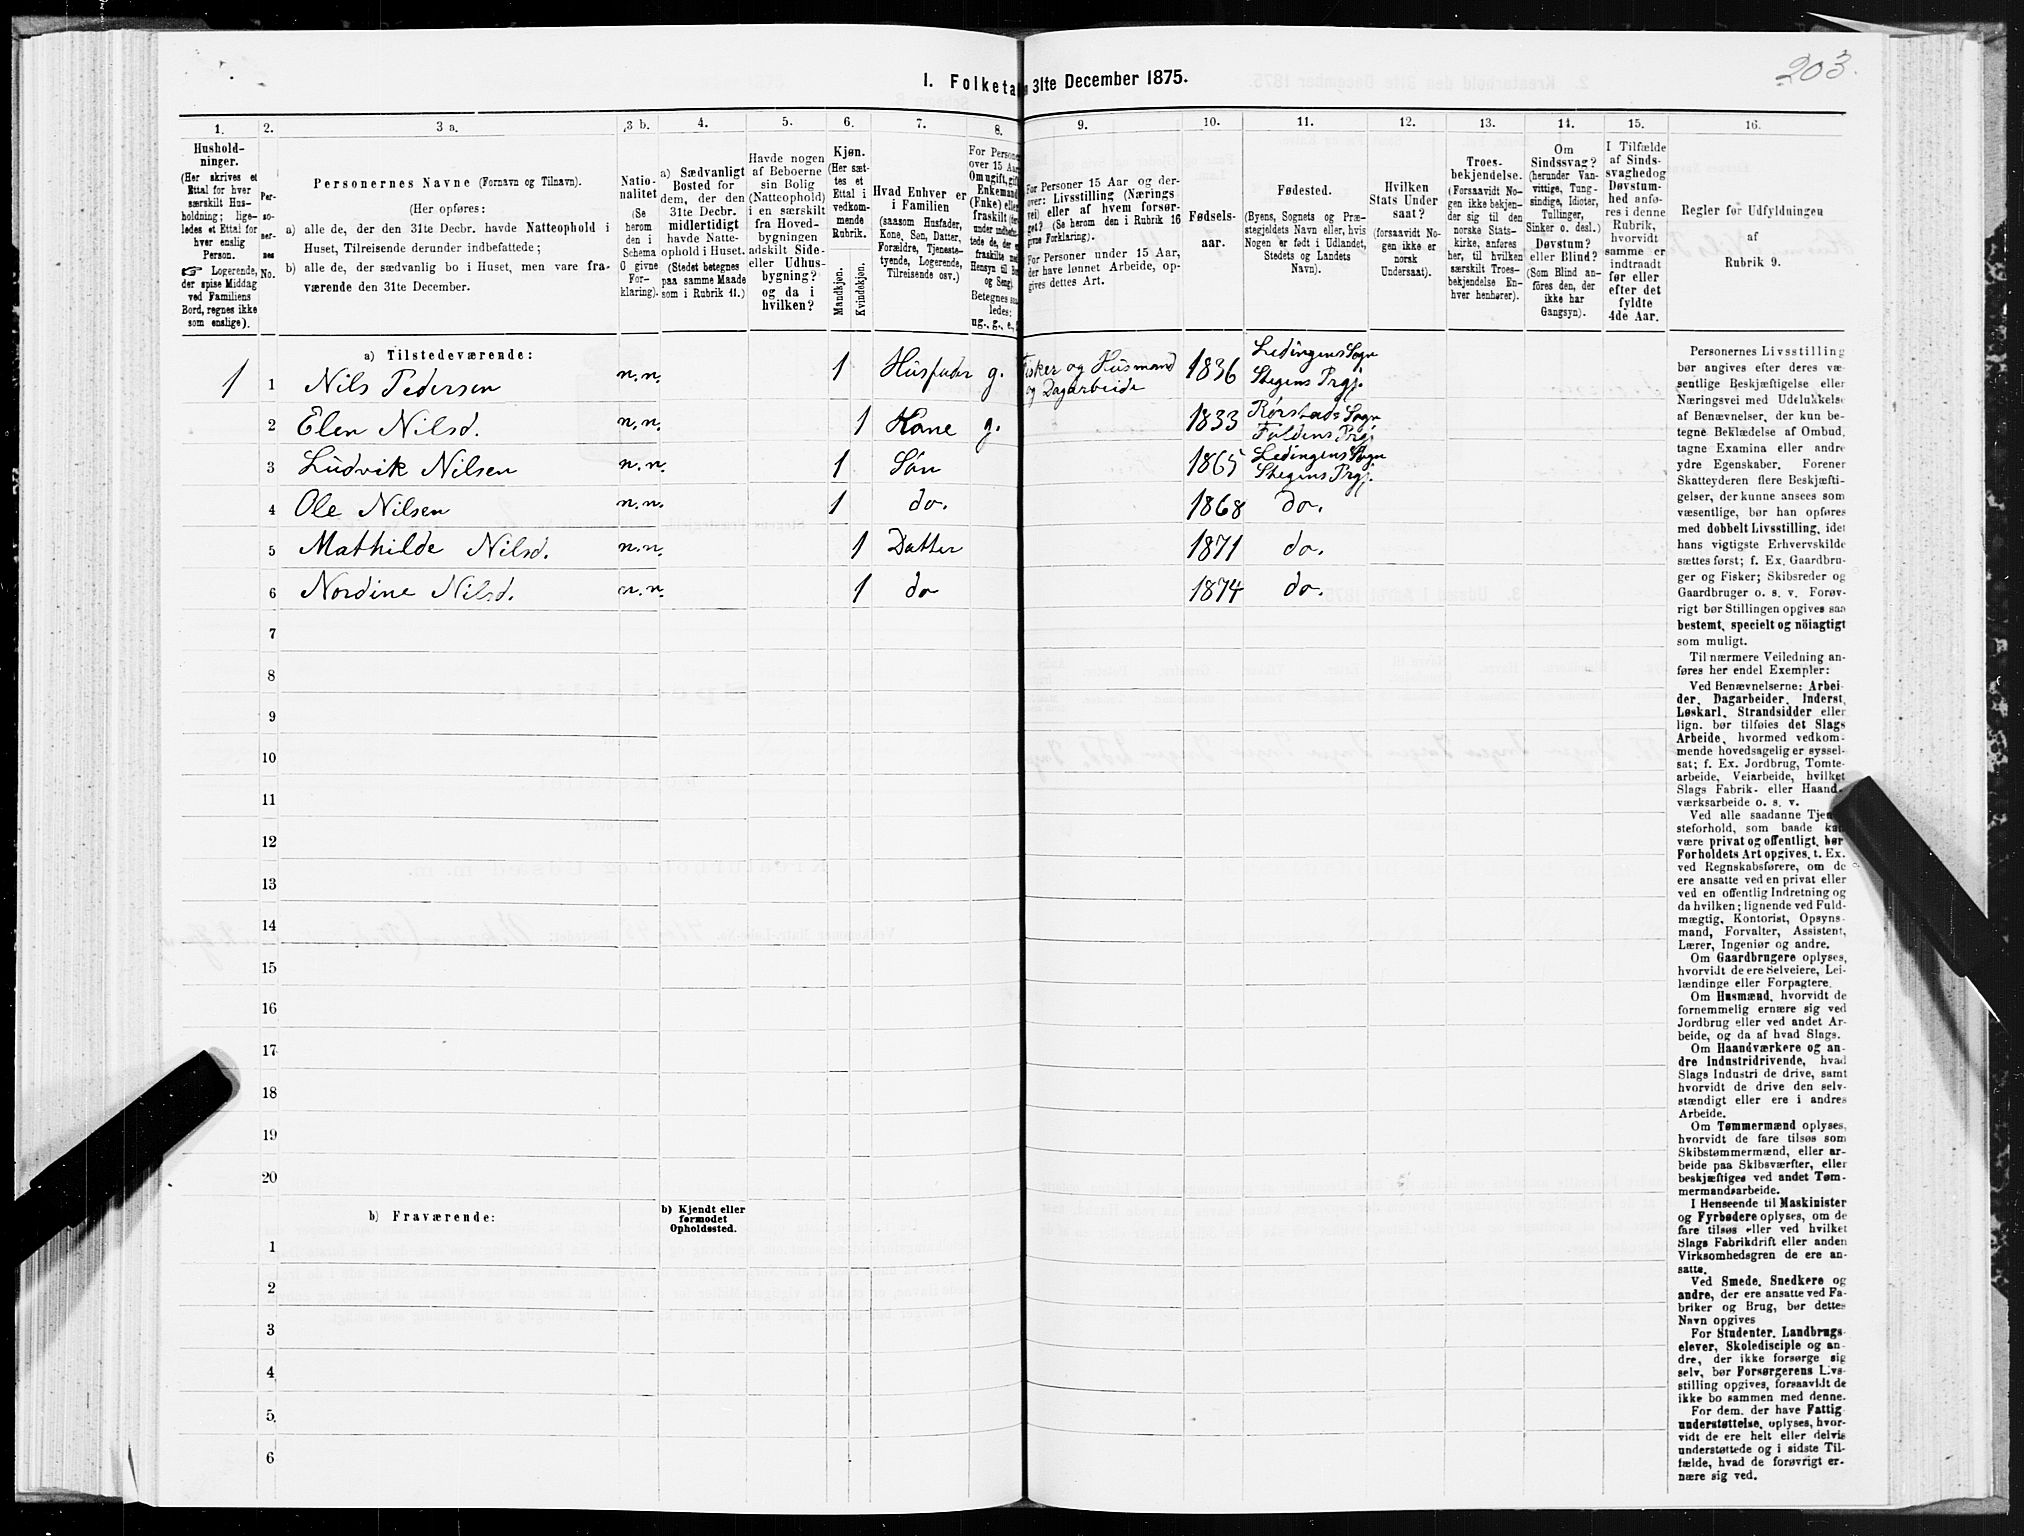 I. Folketa n 31te December 1875.
203.
1.
Hushold-
ninger.
(Her skrives et
Ettal for hver
særskilt Hus-
holdning; lige-
ledes et Ettal for
hver enslig
Person.
☞ Logerende,
der spise Middag
ved Familiens
Bord, regnes ikke
som enslige).
2.
Per-
so-
ner-
nes
No.
3 a.
Personernes Navne (Fornavn og Tilnavn).
(Her opføres:
a) alle de, der den 31te Decbr. havde Natteophold i
Huset, Tilreisende derunder indbefattede;
b) alle de, der sædvanlig bo i Huset, men vare fra-
værende den 31te December.
3 b.
Natio-
nalitet
(Se
herom
den i
Schema
O givne
For-
klaring).
4.
a) Sædvanligt
Bosted for
dem, der den
31te Decbr.
midlertidigt
havde Natte-
ophold i Huset.
(Stedet betegnes
paa samme Maade
som i Rubrik 11.)
5.
Havde nogen
af Beboerne
sin Bolig
(Natteophold)
i en særskilt
fra Hoved-
bygningen
adskilt Side-
eller Udhus-
bygning?
og da i
hvilken?
6.
Kjøn.
(Her sæt-
tes et
Ettal i
vedkom-
mende
Rubrik.
Mandkjøn.
Kvindekjøn.
7.
Hvad Enhver er
i Familien
(saasom Husfader,
Kone, Søn, Datter,
Forældre, Tjeneste-
tyende, Logerende,
Tilreisende osv.)
8.
For Person
over 15 Aar
Om ugift, gift
Enkemand
(Enke) eller
fraskilt
og Seng).
Betegnes saa
ledes:
ug., g., e.,
9.
For Personer 15 Aar og der-
over: Livsstilling (Nærings
vei) eller af hvem forsør-
get? (Se herom den i Rubrik 16
givne Forklaring).
For Personer under 15 Aar,
der have lønnet Arbeide, op-
gives dettes Art.
10.
Fødsels-
aar.
11.
Fødested.
(Byens, Sognets og Præ-
stegjeldets Navn eller, hvis
Nogen er født i Udlandet,
Stedets og Landets
Navn).
12.
Hvilken
Stats Under
saat?
(forsaavidt No-
gen ikke er
norsk
Undersaat).
13.
Troes-
bekjendelse.
(Forsaavidt No-
gen ikke bekjen-
der sig til den
norske Stats-
kirke, anføres
her, til hvilken
særskilt Troes-
bekjendelse En-
hver henhører).
14.
Om
Sindssvag?
(herunder Van-
vittige, Tung-
sindige, Idioter,
Tullinger,
Sinker o. desl.)
Døvstum?
eller Blind?
(Som Blind an-
føres den, der
ikke har
Gangsyn).
15.
I Tilfælde
af Sinds-
svaghed og
Døvstum-
hed anfø-
res i denne
Rubrik,
hvorvidt
samme er
indtraadt
før eller
efter det
fyldte
4de Aar.
16.
Regler for Udfyldningen
af
Rubrik 9.
a) Tilstedeværende:
1 1 Nils Pedersen n.n. 1 Husfader g. Fisker og Husmand og Dagarbeide 1836 Lødingens Sogn Stegens Prgj.
2 Elen Nilsd. n.n. 1 Kone g. 1833 Rørstads Sogn Foldens Prgj
3 Ludvik Nilsen n.n. 1 Søn 1865 Ledingens Sogn Stegens Prgj.
4 Ole Nilsen n.n. 1 do. 1868 do.
5 Mathilde Nilsd. n.n. 1 Datter 1871 do.
6 Nordine Nilsd. n.n. 1 do 1874 do.
7
8
9
10
11
12
13
14
15
16
17
18
19
20
b) Fraværende:
b) Kjendt eller
formodet
Opholdssted.
1
2
3
4
5
6
Personernes Livsstilling
bør angives efter deres væ-
sentlige Beskjæftigelse eller
Næringsvei med Udelukkelse
af Benævnelser, der kun be-
tegne Beklædelse af Ombud,
tagne Examina eller andre
ydre Egenskaber. Forener
Skatteyderen flere Beskjæfti-
gelser, der kunne ansees som
væsentlige, bør han opføres
med dobbelt Livsstilling, idet
hans vigtigste Erhvervskilde
sættes først; f. Ex. Gaardbru-
ger og Fisker; Skibsreder og
Gaardbruger o. s. v. Forøv-
rigt bør Stillingen opgives saa
bestemt, specielt og nöiagtigt
som muligt.
Til nærmere Veiledning an-
føres her endel Exempler:
Ved Benævnelserne: Arbei
der, Dagarbeider, Inderst,
Løskarl, Strandsidder eller
lign. bør tilføies det Slags
Arbeide, hvormed vedkom-
mende hovedsagelig er syssel-
sat; f. Ex. Jordbrug, Tomte-
arbeide, Veiarbeide, hvilket
Slags Fabrik- eller Haand-
værksarbeide o. s. v.
Ved alle saadanne Tjen
steforhold, som baade kan
være privat og offentligt, bør
Forholdets Art opgives, t. Ex.
ved Regnskabsførere, om de
ere ansatte ved en privat eller
ved en offentlig Indretning og
da hvilken; lignende ved Fuld-
mægtig, Kontorist, Opsyns-
mand, Forvalter, Assistent,
Lærer, Ingeniør og andre.
Om Gaardbrugere oplyses,
hvorvidt de ere Selveiere, Lei-
lændinge eller Forpagtere.
Om Husmænd, hvorvidt de
fornemmelig ernære sig ved
Jordbrug eller ved andet Ar-
beide, og da af hvad Slags.
Om Haandværkere og an-
dre Industridrivende, hvad
Slags Industri de drive, samt
hvorvidt de drive den selv-
stændigt eller ere i andres
Arbeide.
Om Tømmermænd oplyses,
hvorvidt de fare tilsøs som
Skibstømmermænd, eller ar-
beide paa Skibsværfter, eller
beskjæftiges ved andet Tøm-
mermandsarbeide.
I Henseende til Maskinister
og Fyrbødere oplyses, om de
fare tilsøs eller ved hvilket
Slags Fabrikdrift eller anden
Virksomhedsgren de ere an-
satte.
Ved Smede, Snedkere og
andre, der ere ansatte ved Fa-
briker og Brug, bør dettes
Navn opgives
For Studenter, Landbrugs
elever, Skoledisciple og an-
dre, der ikke forsørge sig
selv, bør Forsørgerens Livs-
stilling opgives, forsaavidt de
ikke bo sammen med denne.
For dem, der have Fattig
understøttelse, oplyses, hvor-
vidt de ere helt eller delvis
understøttede og i sidste Til-
fælde, hvad de forøvrigt er-
nære sig ved.